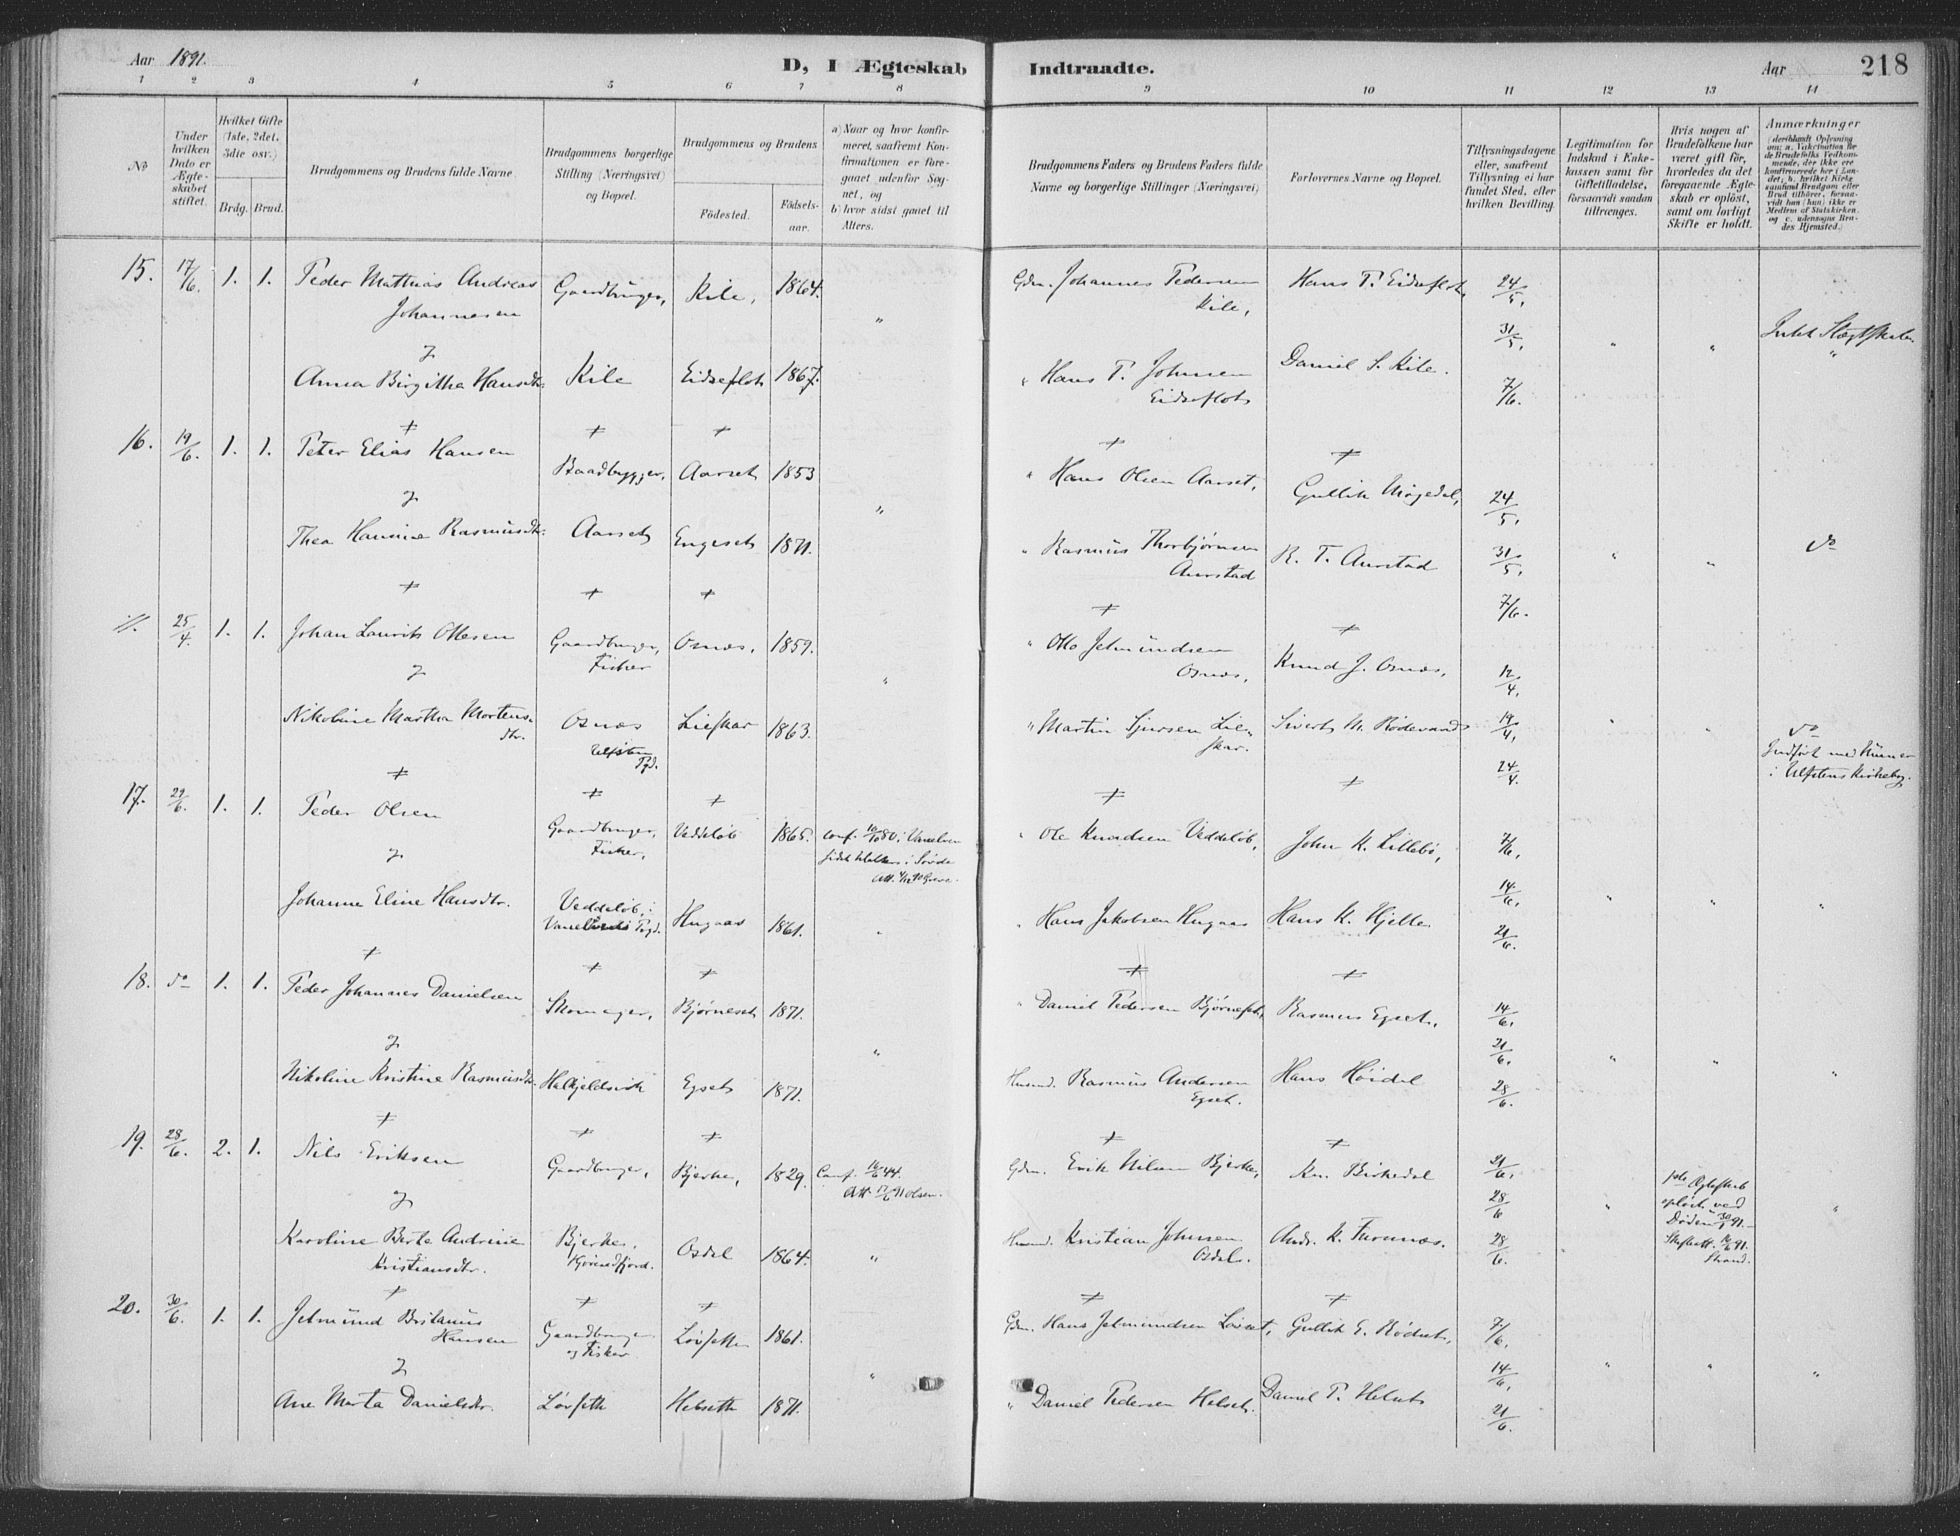 Aar 1891.
D, I Ægteskab Indtraadte.
Aar
218
1 2 3 4 5 6 7 8 9 10 11 12 13 14
No
Under hvilken Dato er Ægteskabet stiftet.
Hvilket Gifte (1ste, 2det, 3die osv.)
Brdg. Brud.
Brudgommens og Brudens fulde Navne.
Brudgommens borgerlige Stilling (Næringsvei) og Bopæl.
Brudgommens og Brudens
Födested.
Födselsaar.
a) Naar og hvor konfirmeret, saafremt Konfirmationen er foregaaet udenfor Sognet, og
b) hvor sidst gaaet til Alters.
Brudgommens Faders og Brudens Faders fulde Navne og borgerlige Stillinger (Næringsvei)
Forlovernes Navne og Bopæl.
Tillysningsdagene eller, saafremt Tillysning ei har fundet Sted, efter hvilken Bevilling.
Legitimation for Indskud i Enkekassen samt for Giftetilladelse, forsaavidt saadan tiltrænges.
Hvis nogen af Brudefolkene har været gift før, hvorledes da det foregaaende Ægteskab er opløst, samt om lovligt Skifte er holdt.
Anmærkninger
(deriblandt Oplysning om: a. Vakcination for de Brudefolks Vedkommende, der ikke ere konfirmerede her i Landet; b. hvilket Kirkesamfund Brudgom eller Brud tilhörer, forsaavidt han (hun) ikke er Medlem af Statskirken, og c. udensogns Brudes Hjemsted.)
15. 17/6. 1. 1. Peder Mathias Andreas Gaardbruger, Kile, 1864. " Gdm. Johannes Pedersen Hans P. Eidseflot, 24/5,
Johannesen Kile, 31/5, " "
&
Anna Birgitha Hansdtr. Kile Eidseflot 1867. " Hans P. Johnsen Daniel S. Kile. 7/6.
Eidseflot
16. 19/6. 1. 1. Peter Elias Hansen Baadbygger, Aarset 1853 " " Hans Olsen Aarset, Gullik Mogedal, 24/5,
&
Thea Hansine Rasmusdtr. Aarset Engeset 1871. " Rasmus Thorbjørnsen R. T. Aurstad 31/5, " " do
Aurstad 7/6.
25/4. 1. 1. Johan Laurits Ottesen Gaardbruger, Osnes, 1859. " " Otto Jetmundsen Knud J. Osnes, 12/4,
Fisker Osnes,
&
Nikoline Martha Mortensdtr. Osnes Liefkar 1863. " Martin Sjursen Lieskar. Siverts M. Rödevand 19/4, " " do
Ulfsten Pgd. 24/4. Indført med Numer
i Ulfstens Kirkebog.
17. 29/6. 1. 1. Peder Olsen Gaardbruger, Veddeløb 1865. " Ole Knudsen Veddeløb, John K. Lillebö, 7/6,
Fisker,
&
Johanne Eline Hansdtr. Veddeløb, i Hugaas 1861. " " Hans Jakobsen Hugaas Hans K. Hjelle 14/6, " " "
21/6.
18. do 1. 1. Peder Johannes Danielsen Skomager, Bjørneset 1871. " " Daniel Pedersen Bjørneset, Rasmus Egset, 14/6,
& 21/6,
Nikoline Kristine Rasmusdtr. Halkjeldsvik Egset 1871. Husmd. Rasmus Andersen Hans Höidal 28/6. " " "
Egset.
19. 28/6. 2. 1. Nils Eriksen Gaardbruger, Bjerke, 1829. Conf. 16/6 44. Gdm. Erik Nilsen Bjerke, Kn. Birkedal 21/6,
Att. 17/6 91 Olsen. 28/6 1ste Ægteskab
& opløst ved
Karoline Berte Andrine Bjerke, Osdal 1864. " Husmd. Kristian Johnsen Andr. K. Furenæs. 28/6. " Døden 30/1 91. "
Kristiansdtr. Hjørendfjord. Osdal. Strand.
20. 30/6. 1. 1. Jetmund Britanus Gaardbruger Løvseth 1861. " Gdm. Hans Jetmundsen Løvset, Gullik E. Rödset, 7/6,
Hansen og Fisker
& 14/6, " " "
Ane Marta Danielsdtr. Løvseth Helseth 1871. " Daniel Pedersen Helset. Daniel P. Helset 21/6.